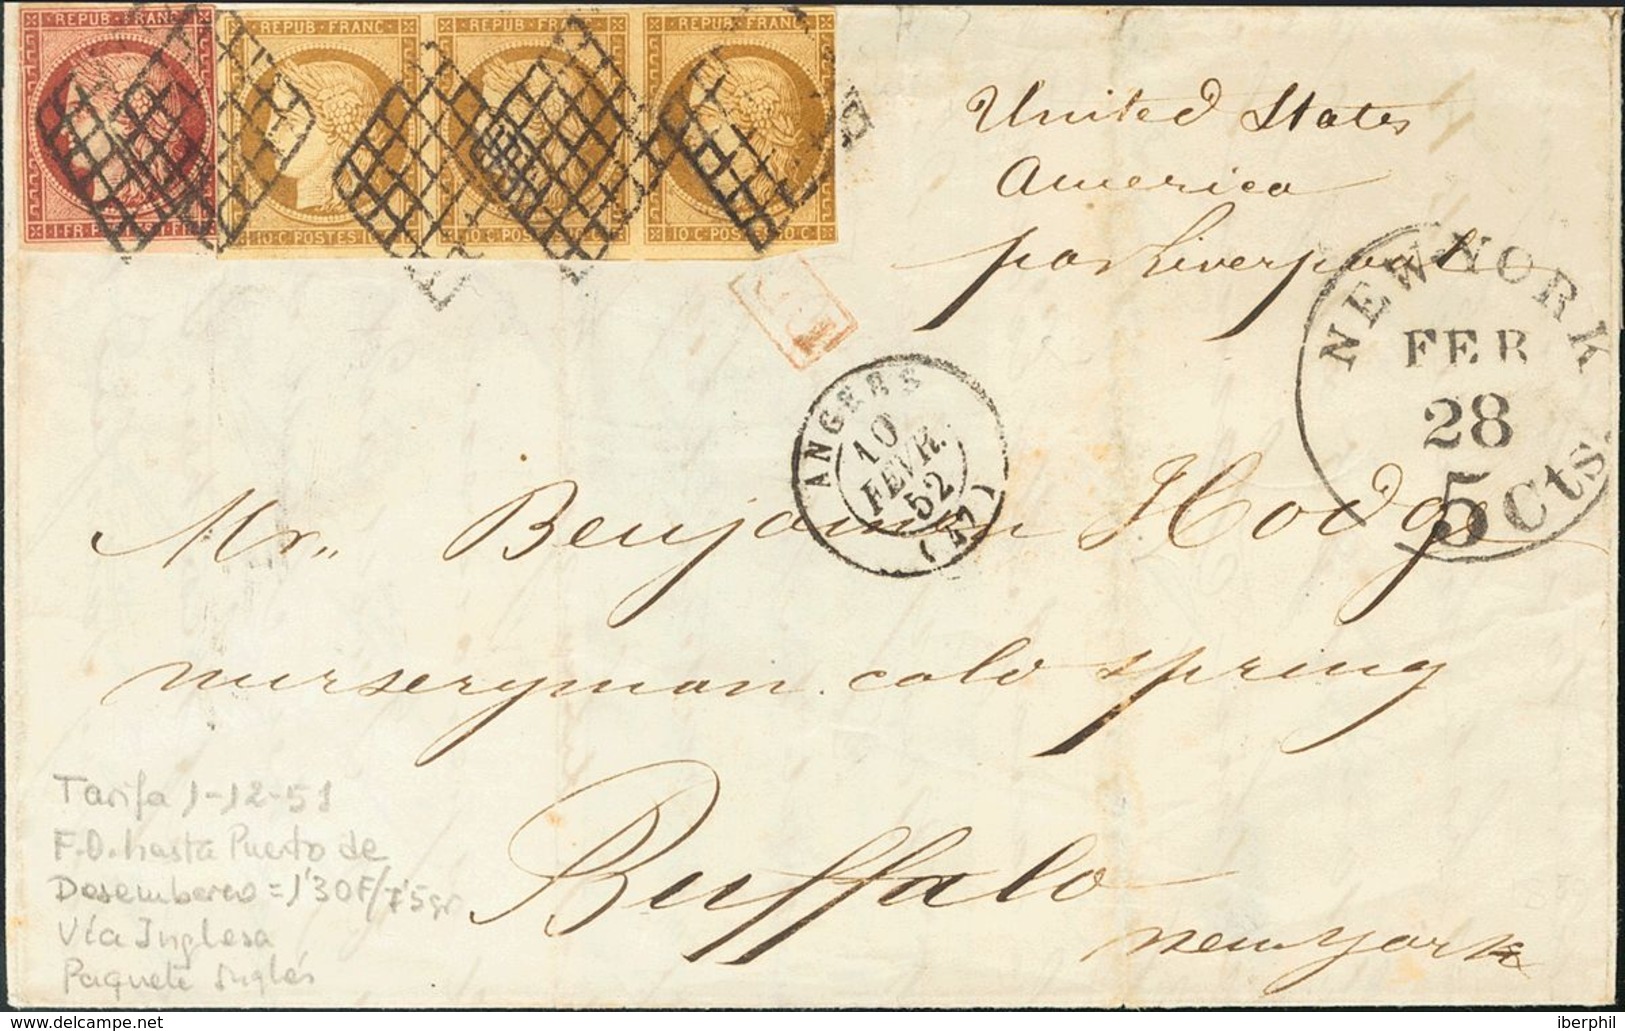 REPUB·FRANC·
REPUB·FRANC·
REPUB·FRANC·
REPUB·FRANC·
10·C·POSTES·
10·C·POSTES
10·C·POSTES·10·C·
United States
America
par Liverpool
NEW YORK
FEB
28
5 Cts
PD
ANGERS
10
FEVR.
52
(47)
Mr. Benjamin Hodge
nurseryman cold spring
Buffalo
new york
Tarifa 1-12-51
F.D. hasta Puerto de
Desembarco = 1'30F/7'5gr
Vía Inglesa
Paquete Inglés
delcampe.net
iberphil